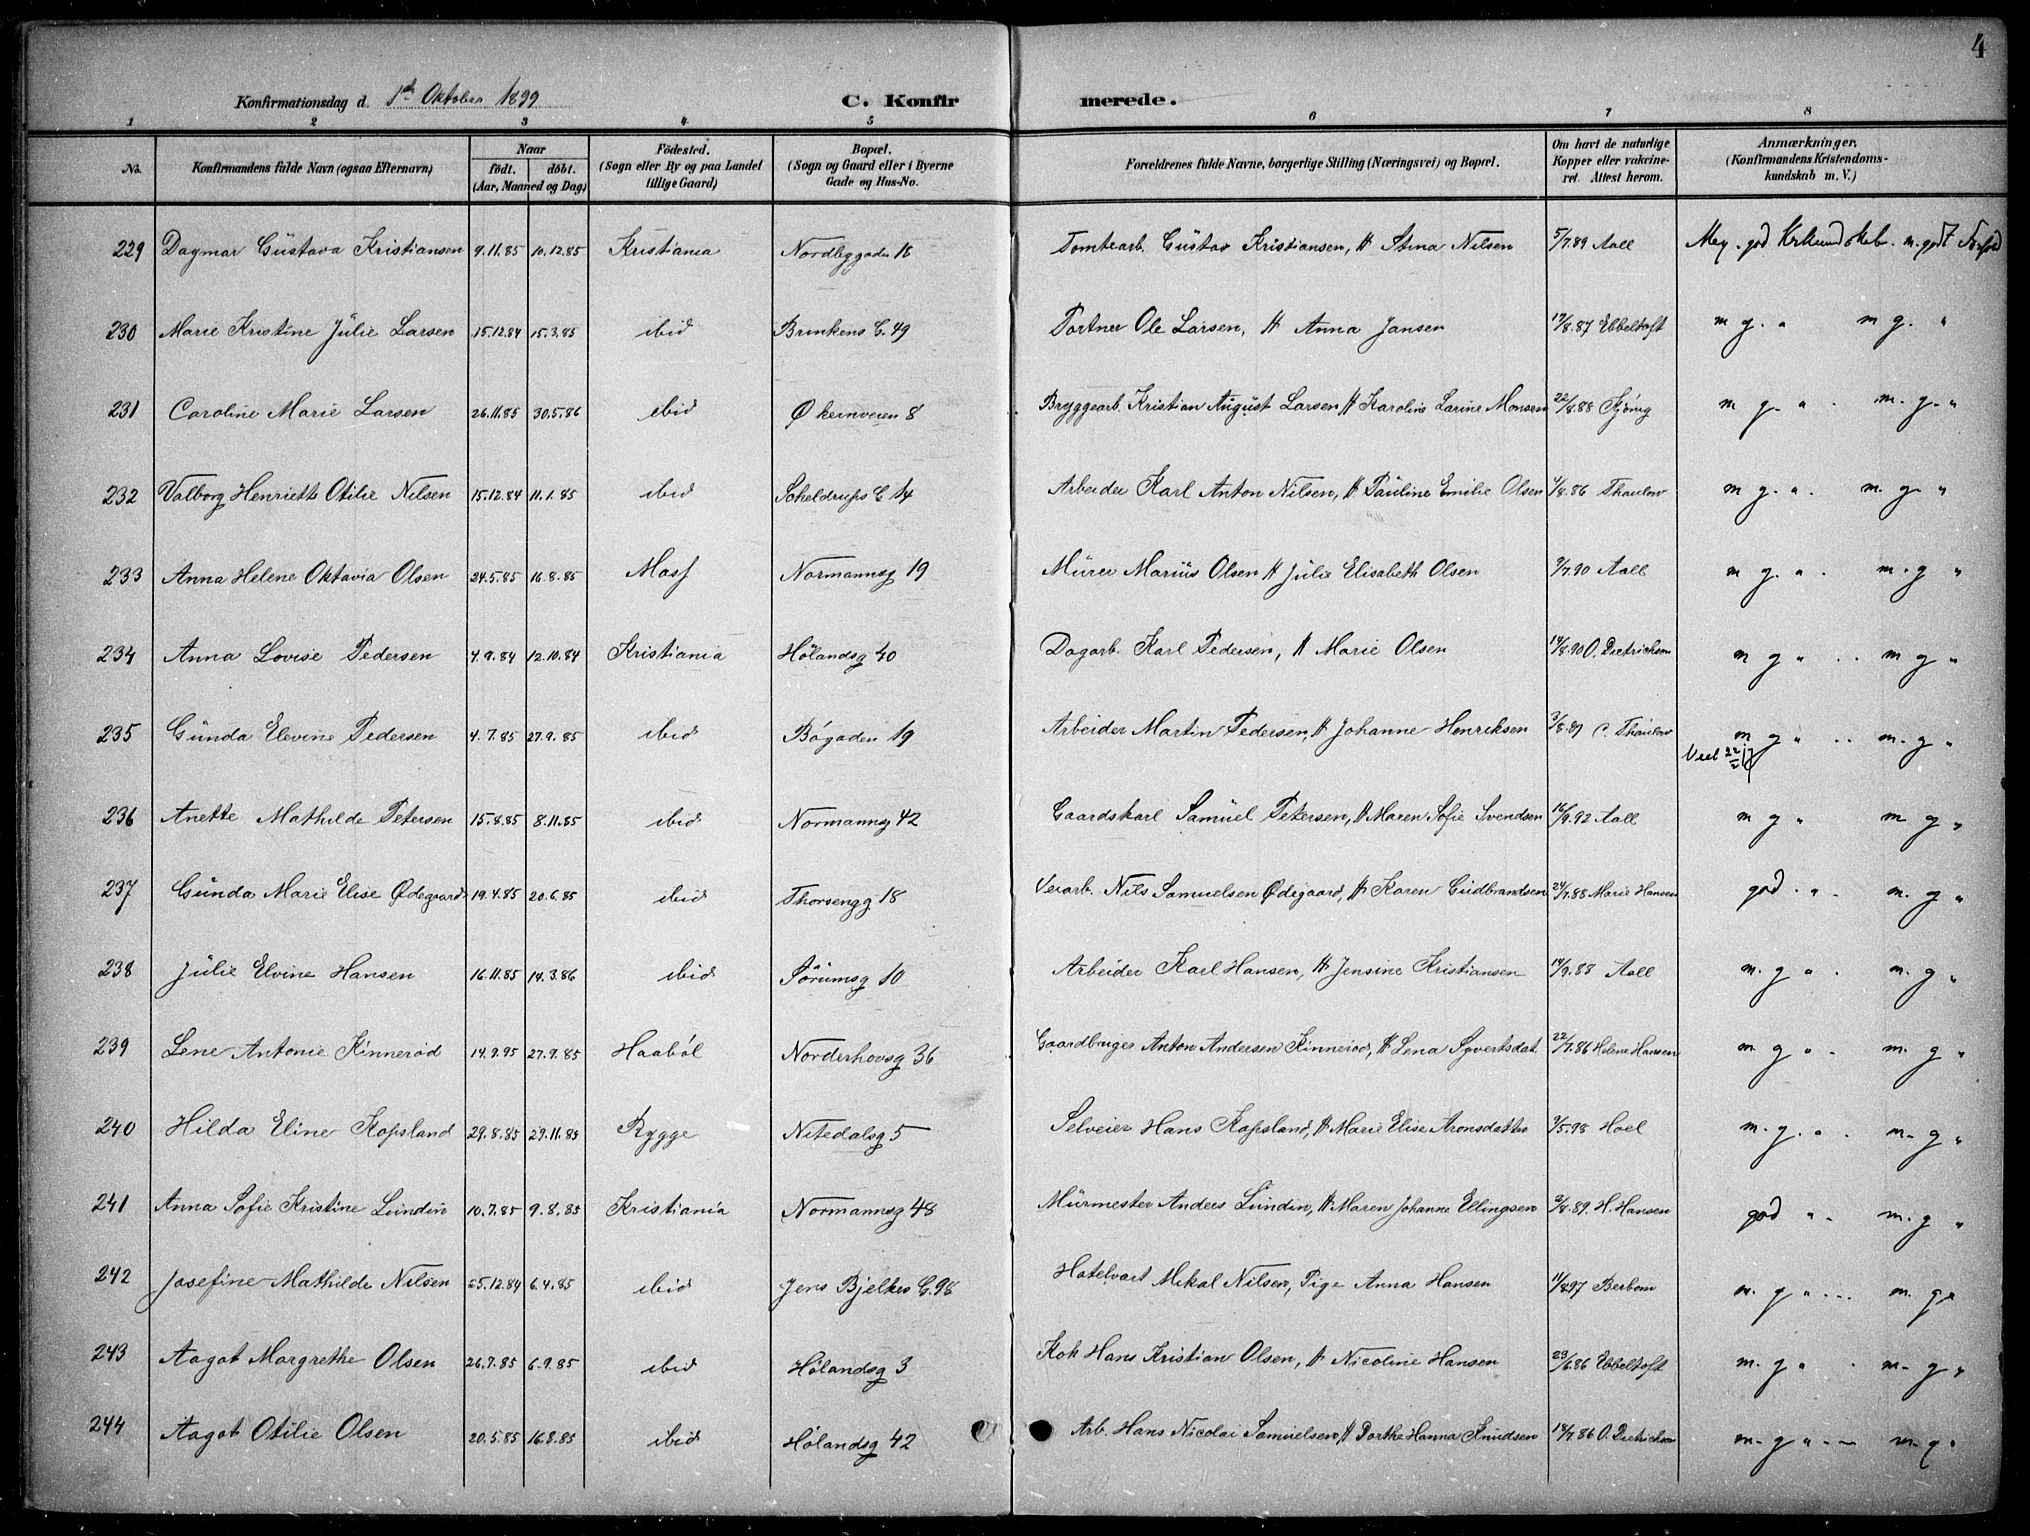 4
Konfirmationsdag d. 1ste Oktober 1899 C. Konfirmerede.
1 2 3 4 5 6 7 8
No. Konfirmandens fulde Navn (ogsaa Efternavn) Naar födt. döbt. (Aar, Maaned og Dag) Födested. (Sogn eller By og paa Landet tillige Gaard) Bopæl. (Sogn og Gaard eller i Byerne Gade og Hus-No. Forældrenes fulde Navne, borgerlige Stilling (Næringsvei) og Bopæl. Om havt de naturlige Kopper eller vakcineret. Attest herom. Anmærkninger. (Konfirmandens Kristendomskundskab m. V.)
229 Dagmar Gustava Kristiansen 9.11.85 10.12.85 Kristiania Nordbygaden 16 Tomtearb. Gustav Kristiansen, H Stina Nilsen 5/7.89 Aall Meg. god Krkundskab. m. godt Forhold
230 Marie Kristine Julie Larsen 15.12.84 15.3.85 ibid Brinkens G. 49 Portner Ole Larsen, H Anna Jansen 17/8.87 Ebbeltoft m g. " m g. "
231 Caroline Marie Larsen 26.11.85 30.5.86 ibid Økernveien 8 Bryggearb. Kristian August Larsen H Karoline Larine Monsen 22/8.88 m g. " . m. g. "
232 Valborg Henriette Otilie Nilsen 15.12.84 11.1.85 ibid Scheldrups G 14 Arbeider Karl Anton Nilsen, H Pauline Emilie Olsen 1/8.86 Thaulow m g. " . m. g. "
233 Anna Helene Oktavia Olsen 24.5.85 16.8.85 Moss Normannsg 19 Murer Marius Olsen H Julie Elisabeth Olsen 9/7.90 Aall m g. " . m. g "
234 Anna Lovise Pedersen 4.9.84 12.10.84 Kristiania Hölandsg 40 Dagarb. Karl Pedersen, H Marie Olsen 14/8.90 O. Dietrichson m g " .. m g "
235 Gunda Elevine Pedersen 4.7.85 27.9.85 ibid Bögaden 19 Arbeider Martin Pedersen, H Johanne Henriksen 3/8.89 C. Thaulow m g " .. m. g "
236 Anette Mathilde Petersen 15.8.85 8.11.85 ibid Normannsg 42 Gaardskarl Samuel Petersen, H Maren Sofie Svendsen 16/9.92 Aall m g " m g "
237 Gunda Marie Elise Ødegaard 19.4.85 20.6.85 ibid Thorsengg 18 Veiarb. Nils Samuelsen Ødegaard, H Karen Gudbrandsen 24/7.88 Marie Hansen god . " . m. g "
238 Julie Elvine Hansen 16.11.85 14.3.86 ibid Sörumsg 10 Arbeider Karl Hansen, H Jensine Kristiansen 14/9.88 Aall m. g " . m. g "
239 Lene Antonie Kinneröd 14.9.95 27.9.85 Haaböl Norderhovsg 36 Gaardbruger Anton Andersen Kinneröd, H Lena Syvertsdat. 22/7.86 Helene Hansen m. g " . m. g "
240 Hilda Eline Kopsland 29.8.85 29.11.85 Rygge Nitedalsg 5 Selveier Hans Kopsland, H Marie Elise Aronsdatter 9/5.98 Hoel m. g. " . m. g "
241 Anna Sofie Kristine Lundin 10.7.85 9.8.85 Kristiania Normannsg 48 Murmester Anders Lundin, H Maren Johanne Ellingsen 2/8.89. H. Hansen god " . m. g "
242 Josefine Mathilde Nilsen 25.12.84 6.4.85 ibid Jens Bjelkes G. 98 Hotelvært Mikal Nilsen, Pige Anna Hansen 11/8 97 Berbom m. g " ... m. g "
243 Aagot Margrethe Olsen 26.7.85 6.9.85 ibid Hölandsg 3 Kok Hans Kristian Olsen, H Nicoline Hansen 23/6.86 Ebbeltoft m. g " . m. g "
244 Aagot Otilie Olsen 20.5.85 16.8.85 ibid Hölandsg 42 Arb. Hans Nicolai Samuelsen, H Dorthe Hanna Knudsen 14/7.86 O. Dietrichson m. g " .. m. g "